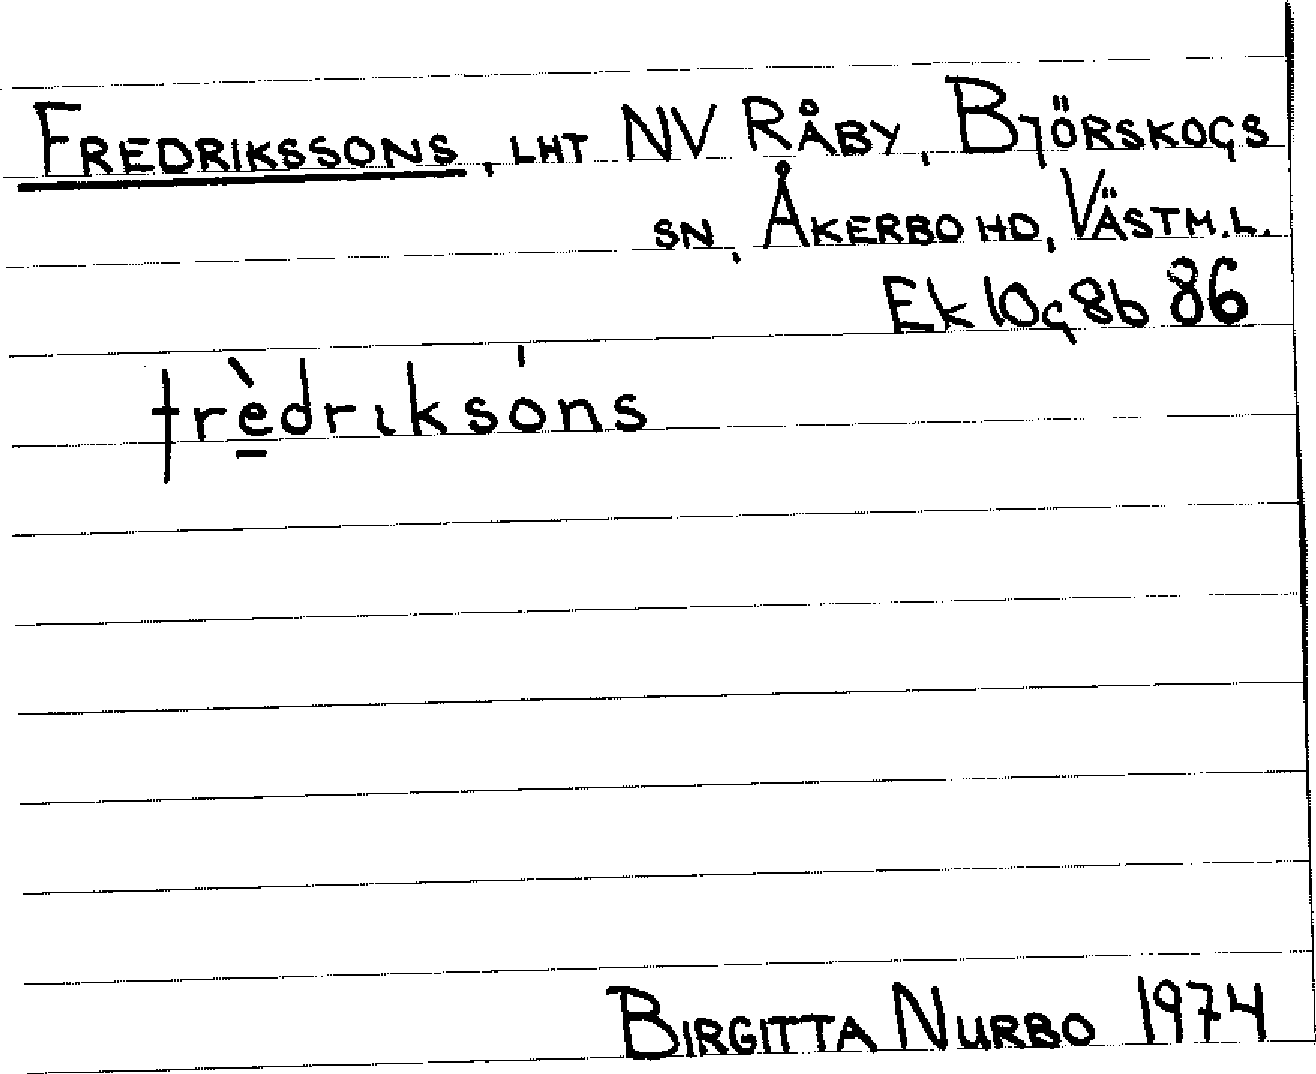 FREDRIKSSONS, LHT NV RÅBY, BJÖRSKOGS
SN, ÅKERBO HD, VÄSTM.L.
Ek 10g8b 86
frè̠driksóns
BIRGITTA NURBO 1974